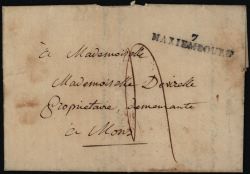 7
MARIEMBOURG
à Mademoiselle
Mademoiselle Devirelle
Propriétaire, demeurante
à Mons